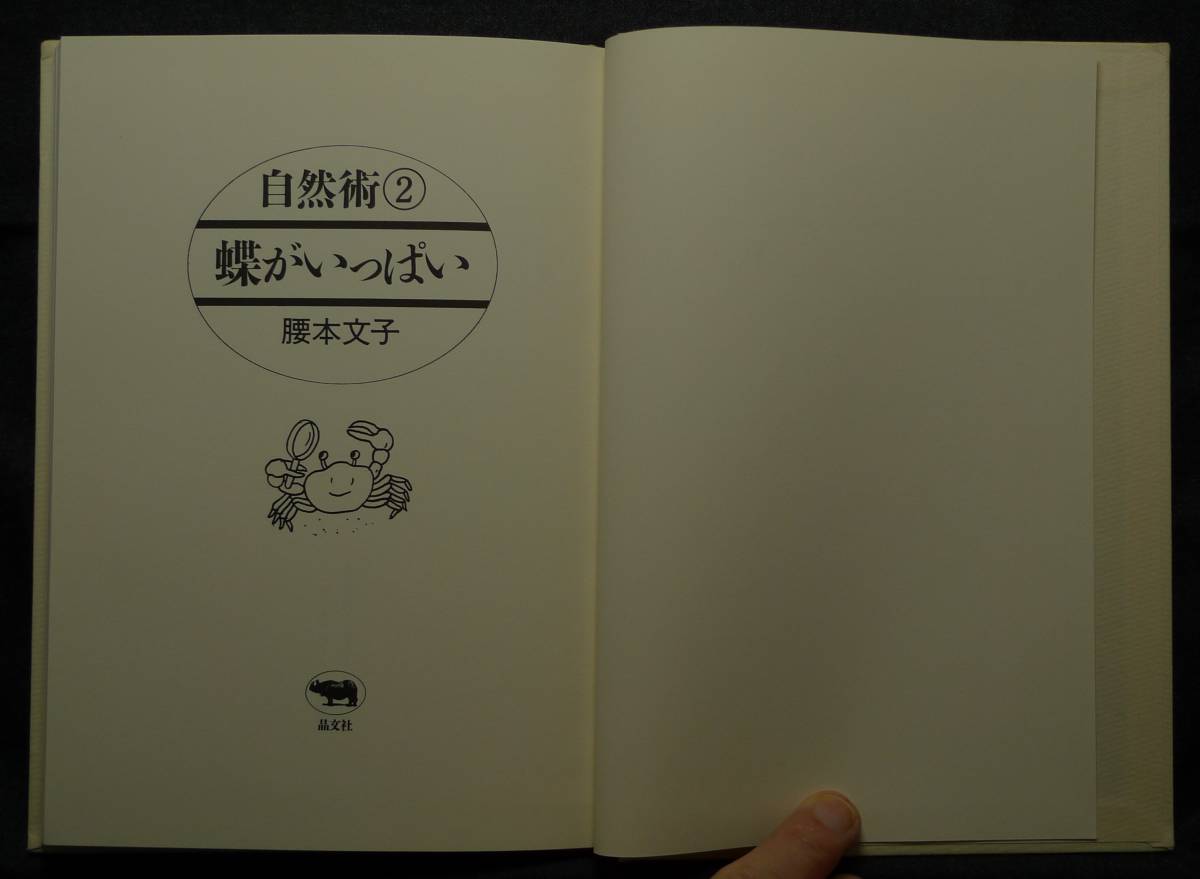 自然術②
蝶がいっぱい
腰本文子
晶文社